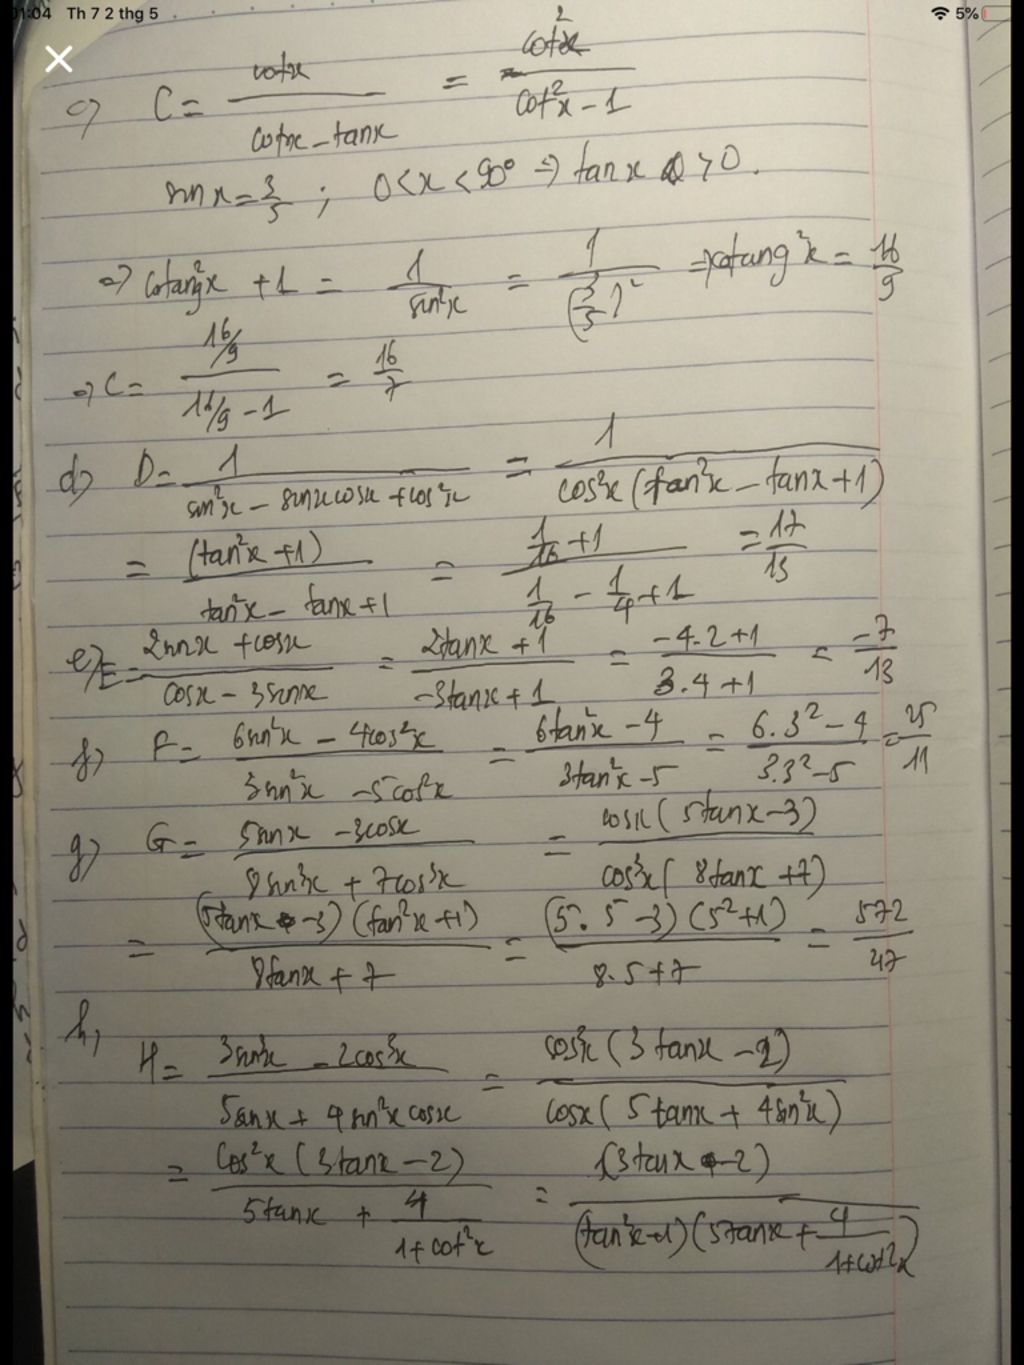 01:04 Th 7 2 thg 5 5%
c) C = cotx / (cotx - tanx) = cot²x / (cot²x - 1)
sin x = 3/5 ; 0 < x < 90° => tan x > 0.
=> cotang²x + 1 = 1 / sin²x = 1 / (3/5)² => cotang²x = 16/9
=> C = (16/9) / (16/9 - 1) = 16/7
d) D = 1 / (sin²x - sinxcosx + cos²x) = 1 / (cos²x (tan²x - tanx + 1))
= (tan²x + 1) / (tan²x - tanx + 1) = (1/16 + 1) / (1/16 - 1/4 + 1) = 17/13
e) E = (2sinx + cosx) / (cosx - 3sinx) = (2tanx + 1) / (-3tanx + 1) = (-4.2 + 1) / (3.4 + 1) = -7/13
f) F = (6sin²x - 4cos²x) / (3sin²x - 5cos²x) = (6tan²x - 4) / (3tan²x - 5) = (6.3² - 4) / (3.3² - 5) = 25/11
g) G = (5sinx - 3cosx) / (8sin³x + 7cos³x) = cosx (5tanx - 3) / (cos³x (8tanx + 7))
= (5tanx - 3) (tan²x + 1) / (8tanx + 7) = (5.5 - 3) (5² + 1) / (8.5 + 7) = 572/47
h,
H = (3sin³x - 2cos³x) / (5sinx + 4sin²x cosx) = cos³x (3tanx - 2) / (cosx (5tanx + 4sin²x))
= cos²x (3tanx - 2) / (5tanx + 4/(1 + cot²x)) = 1(3tanx - 2) / ((tan²x + 1) (5tanx + 4/(1 + cot²x)))